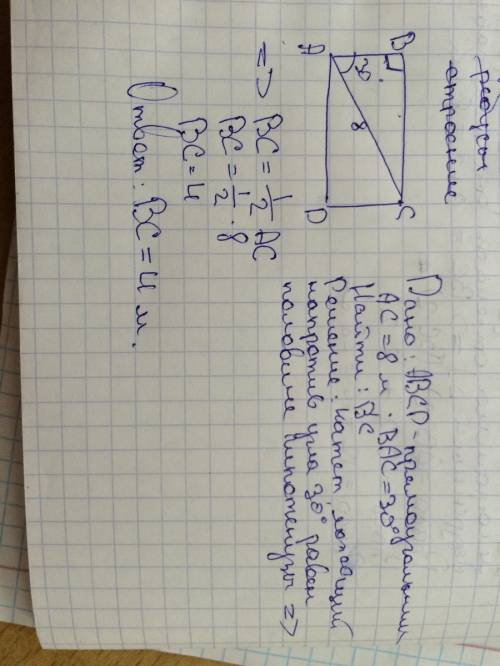 ребусы
строение
B
C
A
D
30
8
Дано: ABCD - прямоугольник
AC = 8 м. BAC = 30°
Найти: BC
Решение: катет, лежащий
напротив угла 30° равен
половине гипотенузы =>
=> BC = 1/2 AC
BC = 1/2 · 8
BC = 4
Ответ: BC = 4 м.